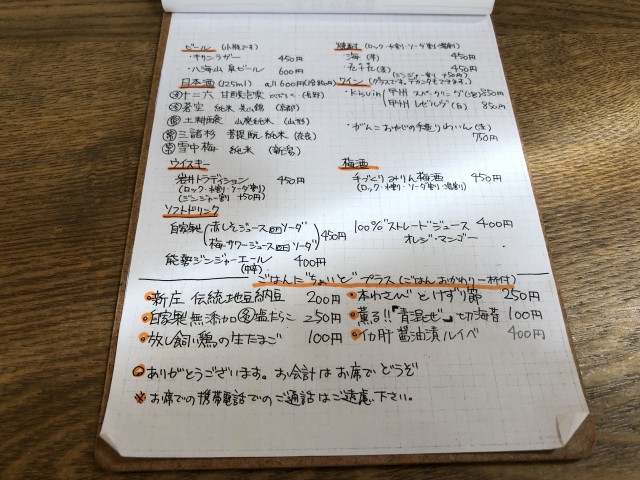 ビール (小瓶です)
・キリンラガー 450円
・八海山 泉ビール 600円
日本酒 (125ml) all 600円
冷 十二六 甘酸泡楽 どぶろく (長野)
冷 蒼空 純米 美山錦 (京都)
土耕醸 山廃純米 (山形)
常 三諸杉 菩提酛 純米 (奈良)
常 雪中梅 純米 (新潟)
ウイスキー
岩井トラディション 450円
(ロック・水割・ソーダ割)
(ジンジャー割 +50円)
ソフトドリンク
自家製 (赤しそジュース or ソーダ
梅サワージュース or ソーダ) 450円
能勢ジンジャーエール 400円
(辛口)
焼酎 (ロック・水割・ソーダ割・湯割)
・海 (芋) 450円
(麦) 450円
(ジンジャー割 +50円)
ワイン (グラスです。デカンタもできます。)
・Kisvin (甲州 スパークリング (泡) 850円
甲州 レゼルヴ (白) 850円
・がんこおやじの手造りわいん (赤)
750円
梅酒
手づくりみりん梅酒 450円
(ロック・水割・ソーダ割・湯割)
100%ストレートジュース 400円
オレンジ・マンゴー
ごはんに"ちょいと"プラス (ごはんおかわり一杯付)
新庄 伝統地豆納豆 200円
自家製無添加 塩たらこ 250円
放し飼い鶏の生たまご 100円
本わさび とけずり節 250円
薫る!!『青混ぜ』一切海苔 100円
イカ肝 醤油漬ルイベ 400円
ありがとうございます。お会計はお席でどうぞ
※お席での携帯電話でのご通話はご遠慮下さい。